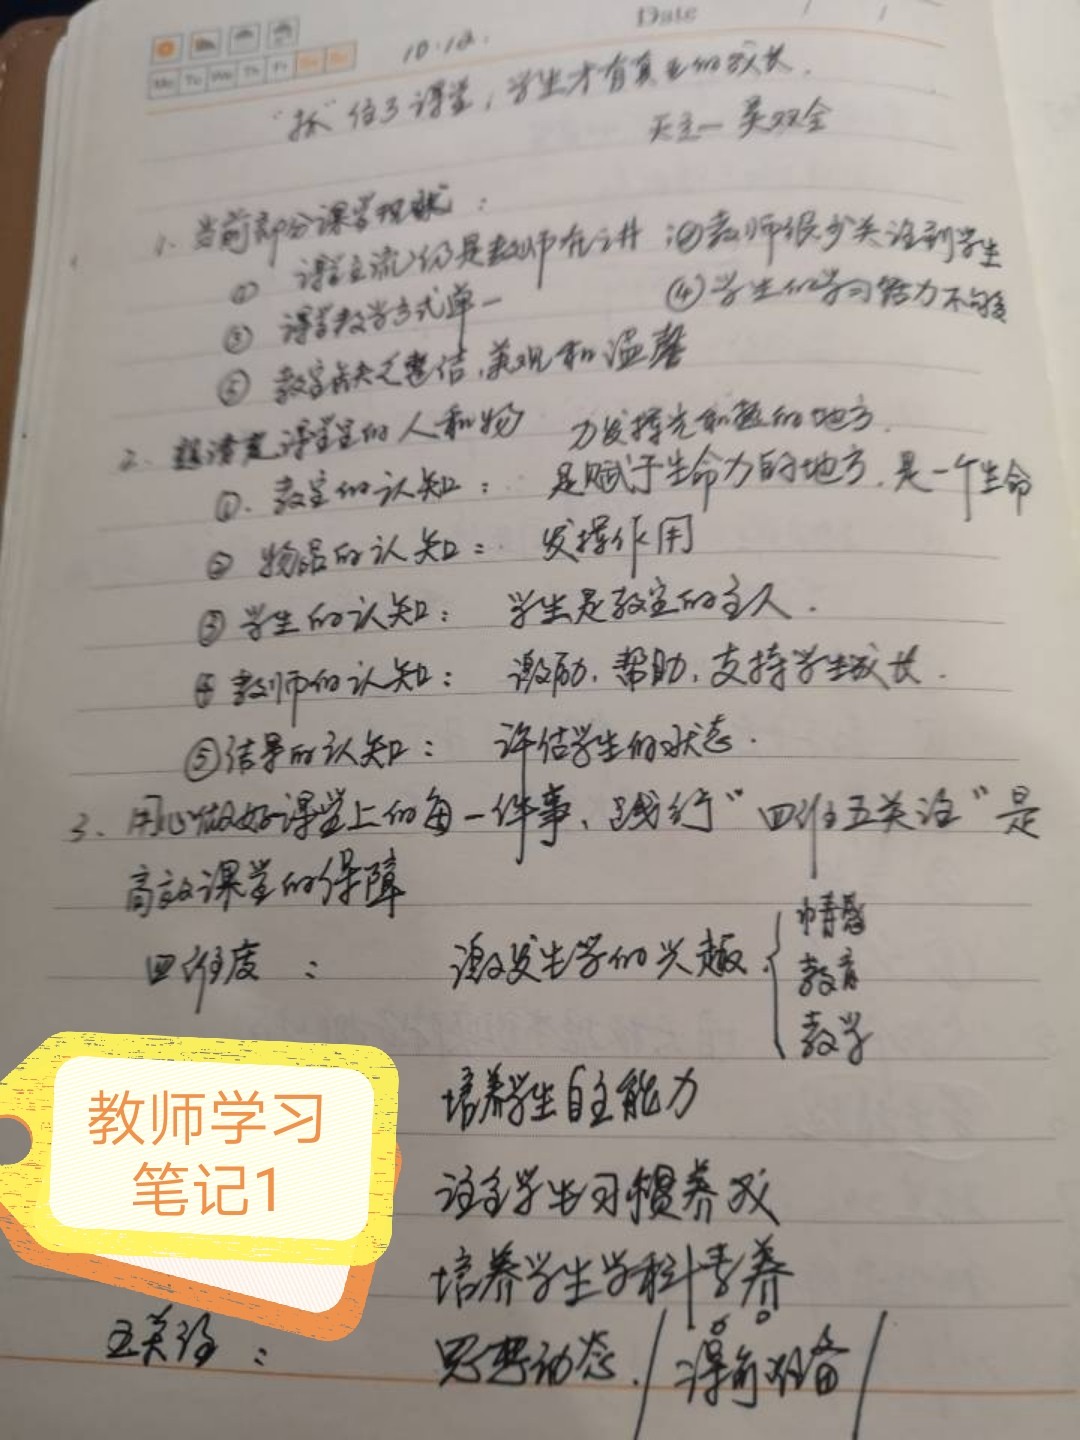 Date / /
Mo Tu We Th Fr Sa Su
10.12.
“抓”住了课堂，学生才有真正的成长.
吴双全
1、当前部分课堂现状：
① 课堂主流仍是教师在讲；②教师很少关注到学生
③ 课堂教学方式单一 ④学生的学习能力不够
⑤ 教室缺乏整洁、美观和温馨
2、课堂里的人和物 力发挥光和热的地方.
①.教室的认知： 是赋于生命力的地方.是一个生命
② 物品的认知： 发挥作用
③ 学生的认知： 学生是教室的主人.
④ 教师的认知： 激励.帮助.支持学生成长.
⑤结果的认知： 评估学生的状态.
3、用心做好课堂上的每一件事、践行“四维五关注”是
高效课堂的保障
四维度： 激发生学的兴趣. 情感
教育
教学
培养学生自主能力
注重学生习惯养成
培养学生学科素养
五关注： 思想动态. / 课前准备 /
教师学习
笔记1